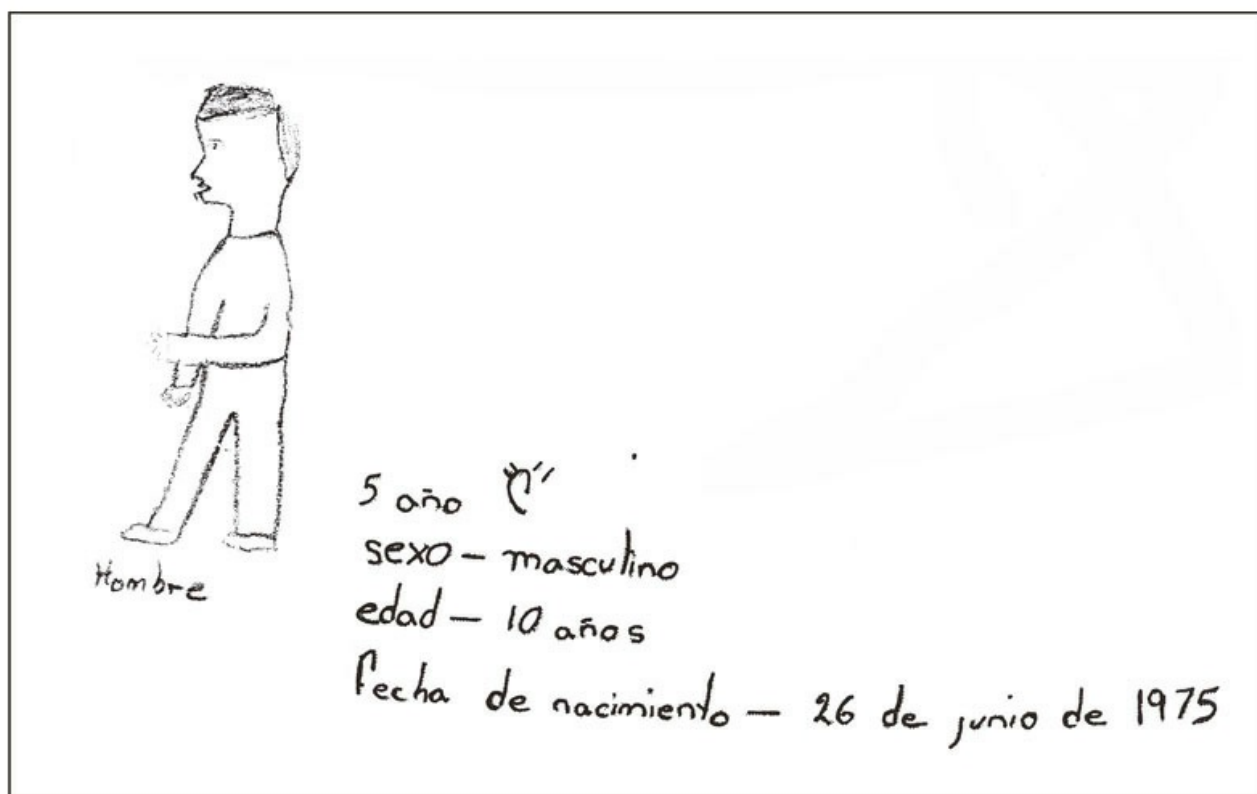 Hombre
5 año "C"
sexo – masculino
edad – 10 años
fecha de nacimiento – 26 de junio de 1975